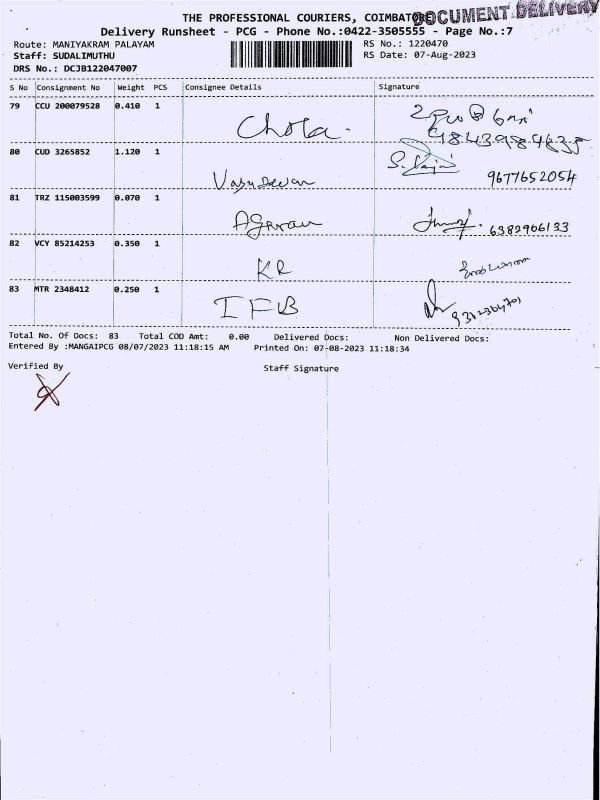 THE PROFESSIONAL COURIERS, COIMBATORE
DOCUMENT DELIVERY
Delivery Runsheet - PCG - Phone No.:0422-3505555 - Page No.:7
Route: MANIYAKRAM PALAYAM RS No.: 1220470
Staff: SUDALIMUTHU RS Date: 07-Aug-2023
DRS No.: DCJB122047007
S No Consignment No Weight PCS Consignee Details Signature
79 CCU 200079528 0.410 1 Chola.
80 CUD 3265852 1.120 1 Vasudevan 9677652054
81 TRZ 115003599 0.070 1 6382906133
82 VCY 85214253 0.350 1 KR
83 MTR 2348412 0.250 1 IFB
Total No. Of Docs: 83 Total COD Amt: 0.00 Delivered Docs: Non Delivered Docs:
Entered By :MANGAIPCG 08/07/2023 11:18:15 AM Printed On: 07-08-2023 11:18:34
Verified By Staff Signature